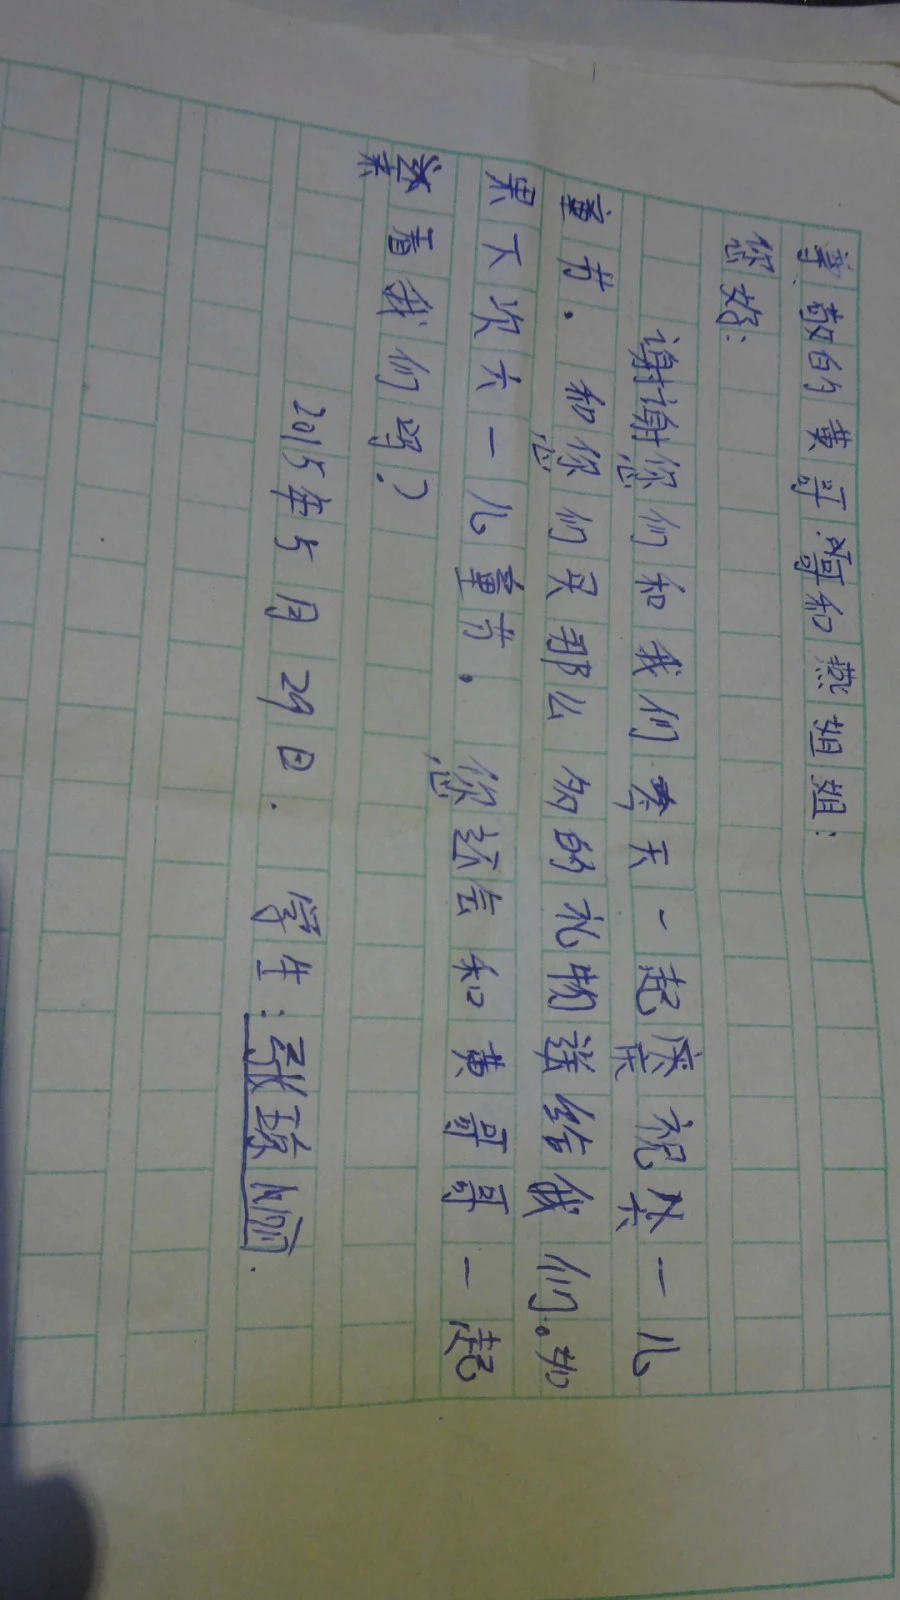 尊敬的黄哥哥和燕姐姐：
您好：
谢谢您们和我们今天一起庆祝六一儿
童节。和您们买那么多的礼物送给我们。如
果下次六一儿童节。您还会和黄哥哥一起
来看我们吗？
2015年5月29日. 学生：张琼